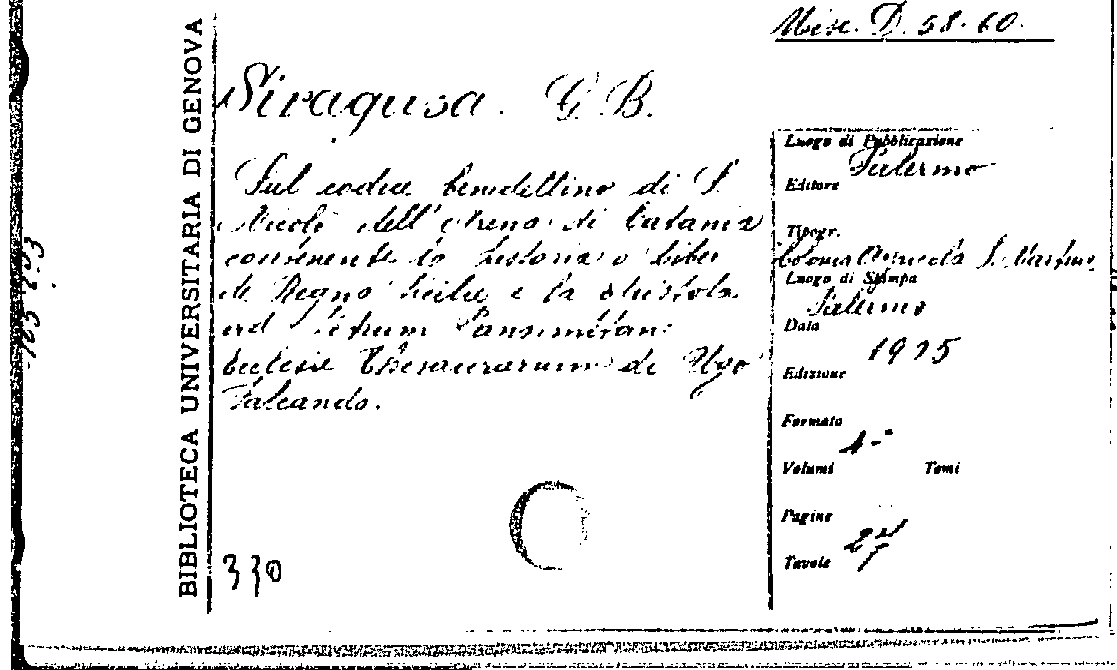 Misc. D. 58. 60.
BIBLIOTECA UNIVERSITARIA DI GENOVA
Siragusa. G. B.
Sul codice benedettino di S.
Nicolò dell'Arena di Catania
contenente la historia o liber
de Regno Sicilie e la epistola
ad Petrum Panormitane
Ecclesie Thesaurarium di Ugo
Falcando.
330
Luogo di Pubblicazione
Palermo
Editore
Tipogr.
Colonia S. Martino
Luogo di Stampa
Palermo
Data
1915
Edizione
Formato
Volumi
Tomi
Pagine
Tavole